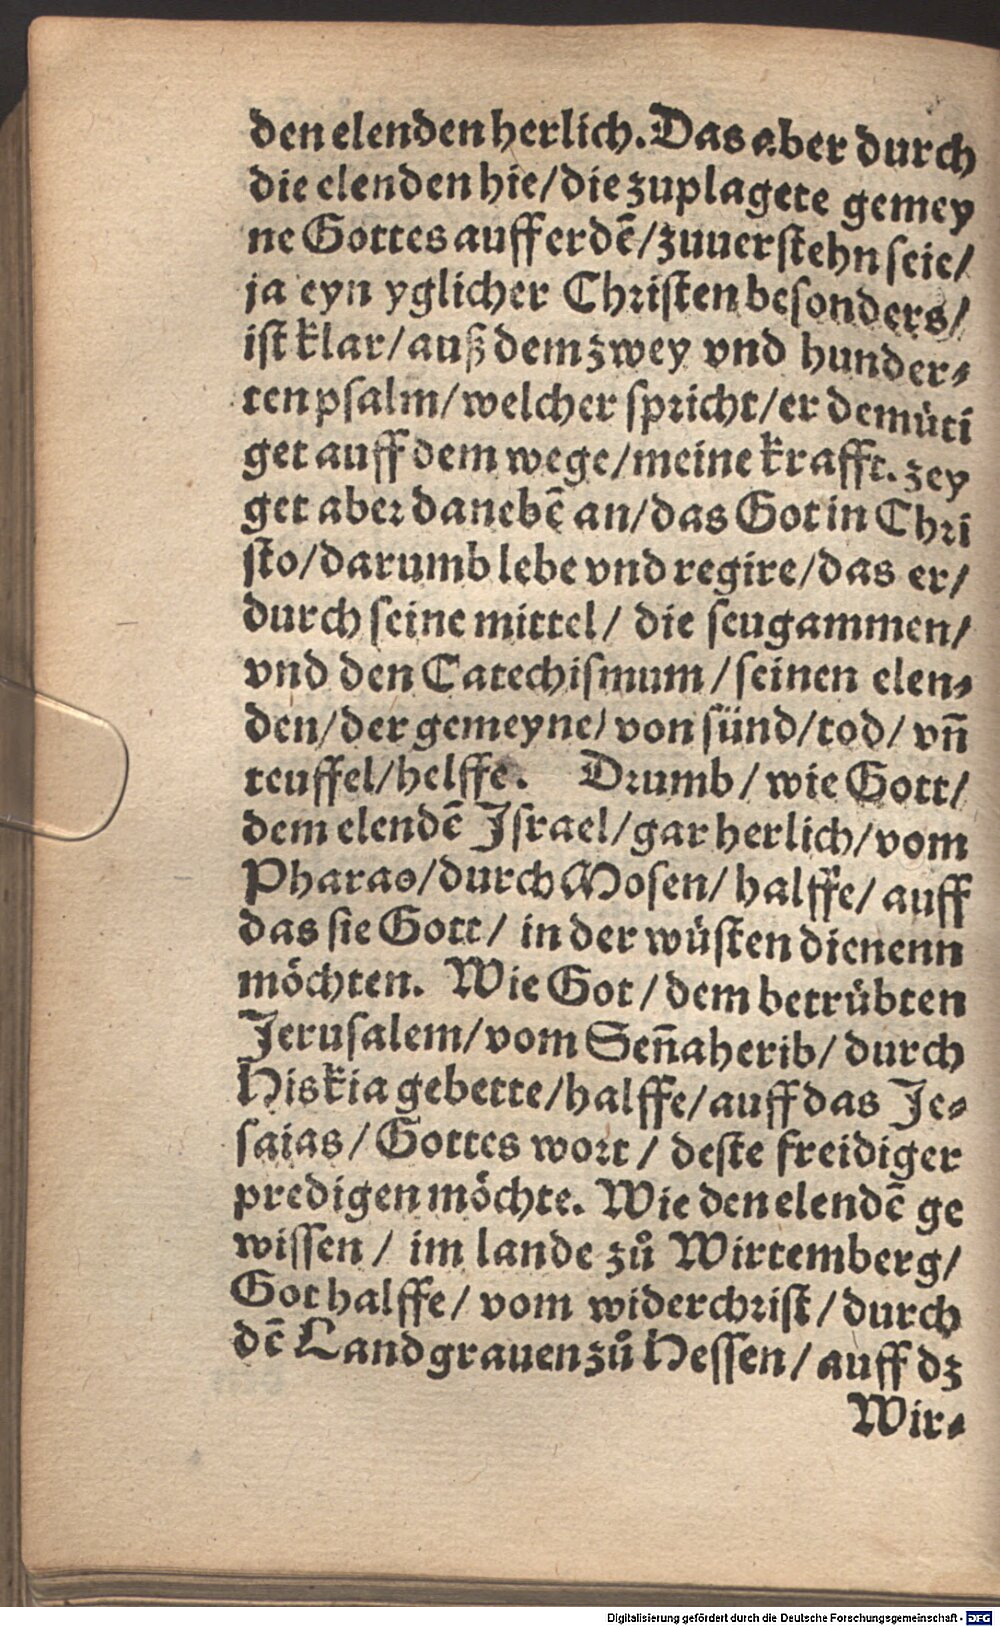 den elenden herlich. Das aber durch
die elenden hie/die zuplagete gemey
ne Gottes auff erdē/zuuerstehn seie/
ja eyn yglicher Christen besonders/
ist klar/auß dem zwey vnd hunder⸗
ten psalm/welcher spricht/er demuͤti
get auff dem wege/meine krafft. zey
get aber danebē an/das Got in Chri
sto/darumb lebe vnd regire/das er/
durch seine mittel/ die seugammen/
vnd den Catechismum/seinen elen⸗
den/der gemeyne/von sünd/tod/ vñ
teuffel/helffe. Drumb/ wie Gott/
dem elendē Israel/gar herlich/vom
Pharao/durch Mosen/ halffe/ auff
das sie Gott/ in der wuͤsten dienenn
möchten. Wie Got/ dem betruͤbten
Jerusalem/vom Señaherib/ durch
Hiskia gebette/halffe/auff das Je⸗
saias/ Gottes wort/ deste freidiger
predigen möchte. Wie den elendē ge
wissen/ im lande zů Wirtemberg/
Got halffe/ vom widerchrist/ durch
dē Landgrauen zů Hessen/ auff dz
Wir⸗
Digitalisierung gefördert durch die Deutsche Forschungsgemeinschaft - DFG